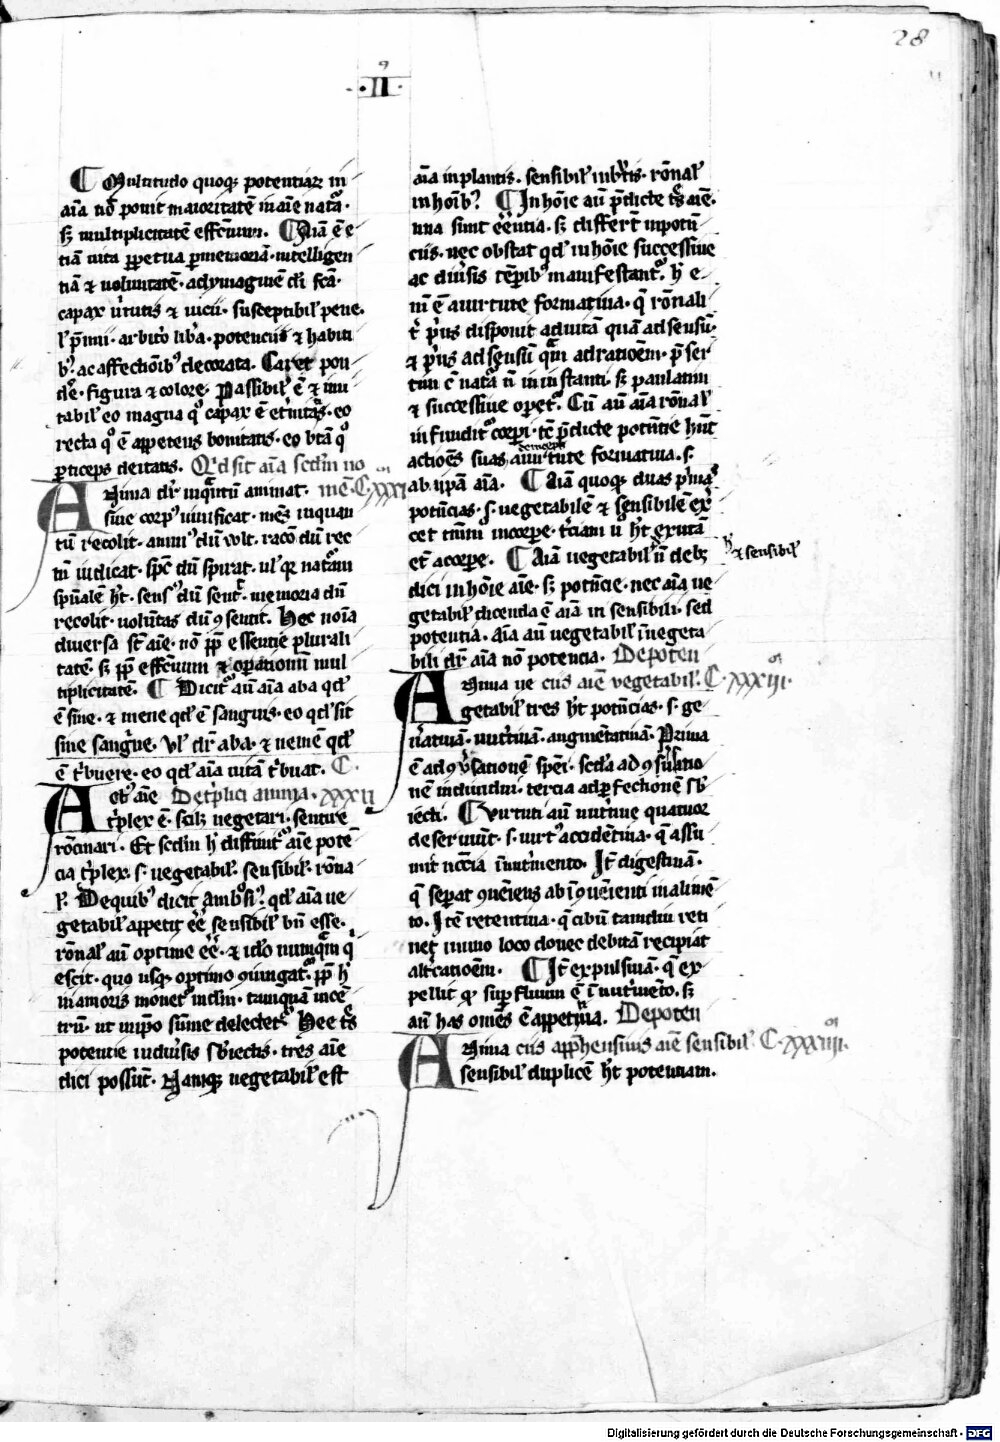 28
.II.
Multitudo quoqꝫ potentiaꝝ in
aīa nō ponit maioritatē in aīe natᷓa.
sꝫ multiplicitatē effectuum. Aīa ē e
tiā uita ꝑpetua ꝑ memoriā. intelligen
tiā ⁊ uoluntatē. ad ymaginē dī fcā.
capax uꝰtutis ⁊ uicii. susceptibil̓ pene.
ł p̄mii. arbitͦ lib̓a. potenciis ⁊ habiti
bꝰ. ac affectiōibꝰ decorata. Caret pon
de. figura ⁊ colore. Passibil̓ ē ⁊ mu
tabil̓ eo magna qͦ capax ē et̓nitatis. eo
recta qͦ ē appetens bonitatis. eo btā qͦ
ꝑticeps deitatis. Qd sit aīa scdm no
mē. C. xxxi
Anima dr̄ inqᷓntū animat.
sine corpꝰ uiuificat. mēs inquan
tū recolit. animꝰ dū vult. racō dū rec
tū iudicat. spc̄ dū spirat. uł qꝛ natᷓam
spūalē hꝫt. sensꝰ dū sentͥ. memoria dū
recolit. volūtas dū ꝯsentit. Hec noīa
diuersa sūt aīe. nō ꝓp̄ essentie plurali
tatē. sꝫ ꝓp̄ effectuum ⁊ oꝑationū mul
tiplicitatē. Dicitᷣ aūt aīa aba qd
ē sine. ⁊ mene qd ē sanguis. eo qd sit
sine sanguine. Vł dr̄ aba. ⁊ nemē qd
ē tͥbuere. eo qd aīa uitā tͥbuat. C.
xxxii
De tͥplici anima.
Actꝰ aīe
tͥplex ē. scilꝫ vegetari. sentire
rōcinari. Et scdm h̓ distinguitᷣ aīe potē
cia tͥplex. s. uegetabil̓. sensibil̓. rōna
ł. De quibꝰ dicit Ambrosiꝰ. qd aīa ue
getabil̓ appetit eē̄. sensibil̓ bn̄ esse.
rōnal̓ aū optime eē̄. ⁊ ido nunqᷓm qͥ
escit. quo usqꝫ optimo ꝯiungatᷣ. ꝓp̄ h̓
in amoris monetᷣ indm. tanquā in cē
trū. ut in ip̄o sūme delectetᷣ. Hee tͤs
potentie in diu̓sis sb̓iectis. tres aīe
dici possūt. Namqꝫ uegetabil̓ est
aīa in plantis. sensibil̓ in brutis. rōnal̓
in hoībꝰ. In hoīe aū p̄dicte tͤs aīe.
una sunt essentia. sꝫ differūt in potē
ciis. nec obstat qd in hoīe successiue
ac diu̓sis tēpibꝰ manifestantᷣ. h̓ e
nī ē a uirtute formatiua. q̄ rōnali
tͥ pͥus disponit ad uitā quā ad sensū.
⁊ pͥus ad sensū qᷓm ad rationem. p̄ser
tim cū natᷓa nō in instanti. sꝫ paulatim
⁊ successiue oꝑetᷣ. Cū aū aīa rōnal̓
infunditᷣ corpi. tc̄ p̄dicte potēntie hn̄t
actiōes suas a uirtute formatiua. s.
ab ip̄a aīa. Aīa quoqꝫ duas pͥmas
potencias. s. vegetabilē ⁊ sensibilē exͥ
cet tm̄ in corpe. tͥciam ū hꝫt ex uita
et̄ a corpe. Aīa uegetabil̓ n̄ debꝫ
h̓ ⁊ sensibil̓
dici in hoīe aīe. sꝫ potēncie. nec aīa ue
getabil̓ dicenda ē aīa in sensibili. sed
potentia. Aīa aū uegetabil̓ in uegeta
bili dr̄ aīa nō potencia. De poten
ciis aīe vegetabil̓. C. xxxiii.
Anima ue
getabil̓ tres hꝫt potēncias. s. ge
n̓atiuā. nutͥtiuā. augmētatiuā. Prima
ē ad ꝯseruationē spēi. scdᷓa ad ꝯseruatio
nē indiuidui. tercia ad ꝑfectionē sb̓
iecti. Virtuti aū nutͥtiue quatuor
deseruiūt. s. uirtꝰ accidētiua. q̄ assu
mit nccīa in nutͥmento. Itē digestiuā.
q̄ seꝑat ꝯueniens ab incōuenienti in alimē
to. Itē retentiua. q̄ cibū tamdiu reti
net in uno loco donec debitā recipiat
alt̓cationem. Itē expulsiuā. q̄ ex
pellit qͩ suꝑfluum ē in nutͥmēto. sꝫ
aū has omēs ē appetitiua. De poten
ciis appͣhensiuis aīe sensibil̓. C. xxxiiii.
Anima
sensibil̓ duplicē hꝫt potentiam.
Digitalisierung gefördert durch die Deutsche Forschungsgemeinschaft - DFG